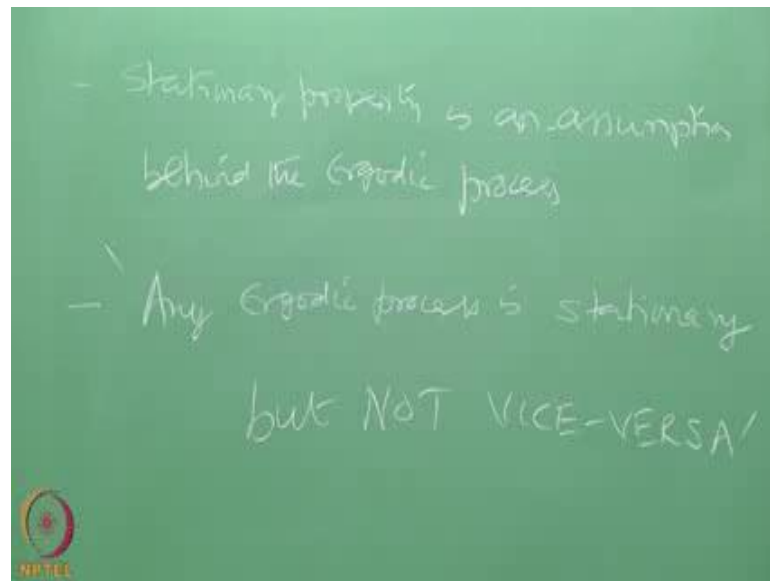 - Stationary property is an assumption
behind the Ergodic process
- 'Any Ergodic process is stationary
but NOT VICE-VERSA'
NPTEL